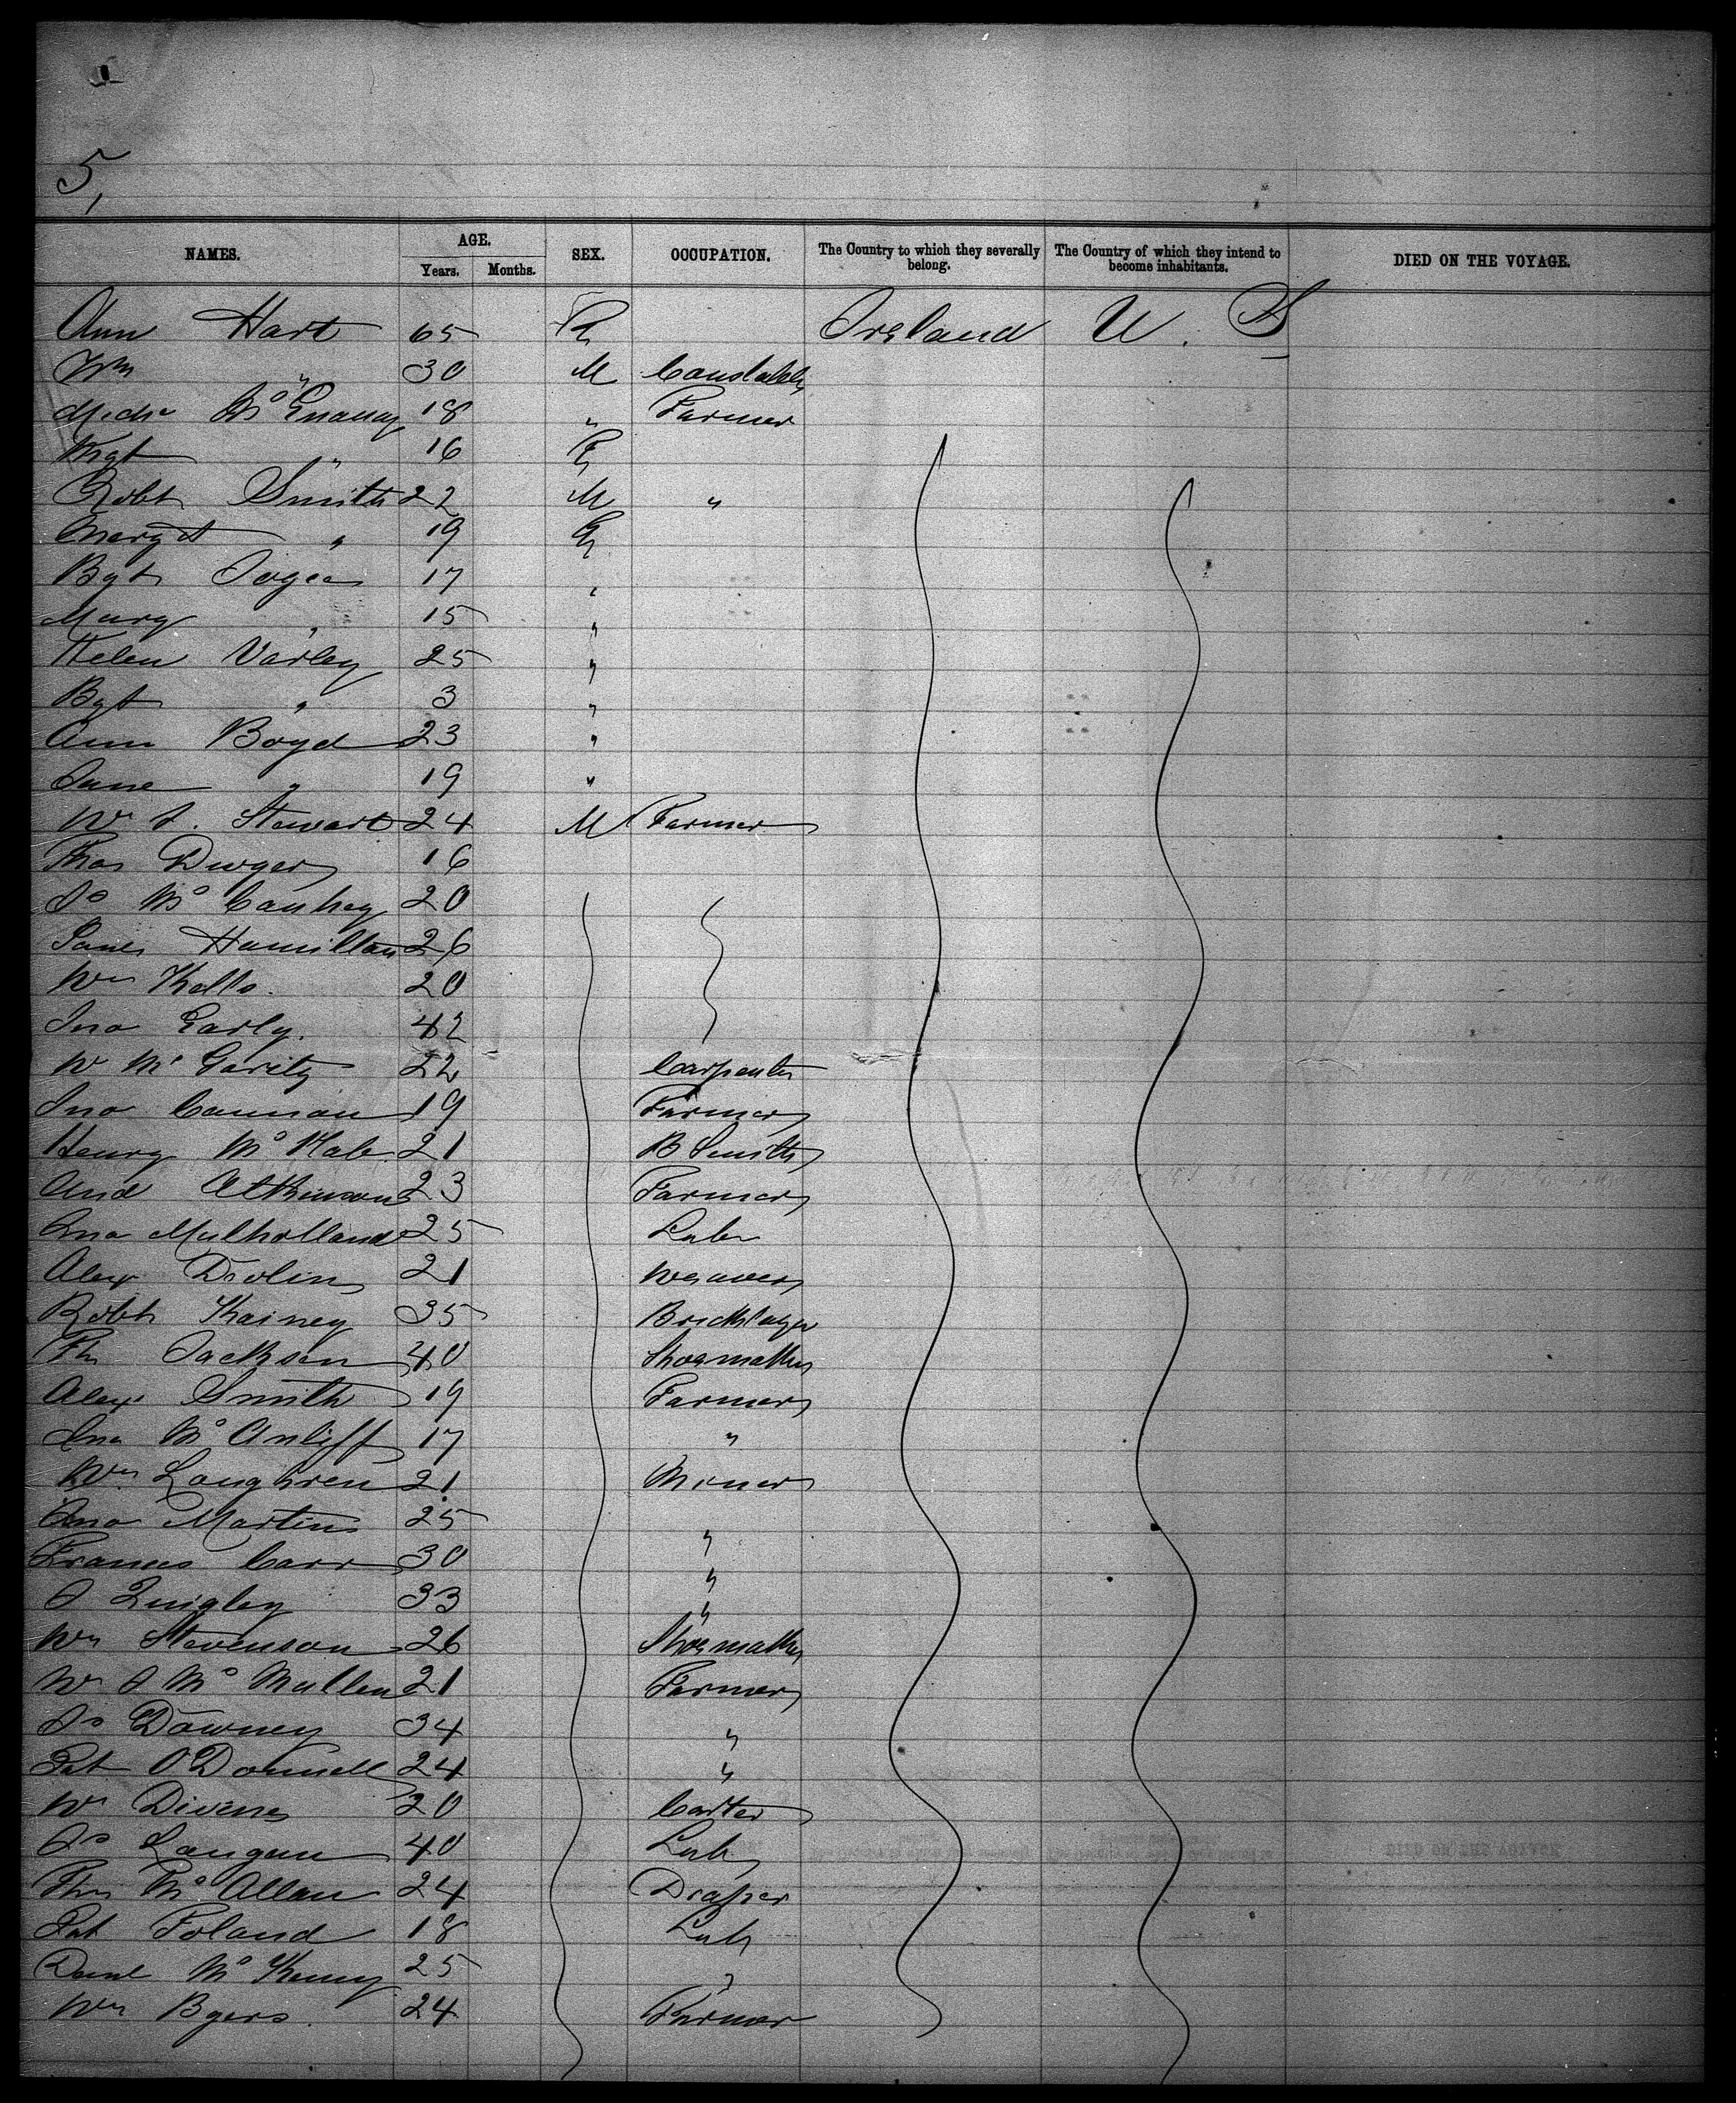 5,
NAMES. AGE. Years. Months. SEX. OCCUPATION. The Country to which they severally belong. The Country of which they intend to become inhabitants. DIED ON THE VOYAGE.
Ann Hart 65 F Ireland U. S
Wm " 30 M Constable
Mich Mc Enanay 18 " Farmer
Mgt " 16 F
Robt Smith 22 M "
Margt " 19 F
Bgt Joyce 17 "
Mary " 15 "
Helen Varley 25 "
Bgt " 3 "
Ann Boyd 23 "
Jane " 19 "
Wm J. Stewart 24 M Farmer
Thos Dwyer 16
Js Mc Caughey 20
James Hamilton 26
Wm Kells 20
Jno Early. 42
W Mc Garity 22 Carpenter
Jno Cannon 19 Farmer
Henry Mc Hale 21 B Smith
And Atkinson 23 Farmer
Jno Mulholland 25 Labr
Alex Devlin 21 Weaver
Robt Rainey 35 Bricklayer
Ths Jackson 40 Shoemaker
Alex Smith 19 Farmer
Jno Mc Anliff 17 "
Wm Loughren 21 Miner
Jno Martin 25 "
Frances Carr 30 "
J Quigley 33 "
Wm Stevenson 26 Shoemaker
Wm J Mc Mullen 21 Farmer
Js Downey 34 "
Pat O'Donnell 24 "
Wm Divine 20 Carter
Js Langan 40 Labr
Thos Mc Allan 24 Draper
Pat Foland 18 Labr
Danl Mc Kenny 25 "
Wm Byers. 24 Farmer